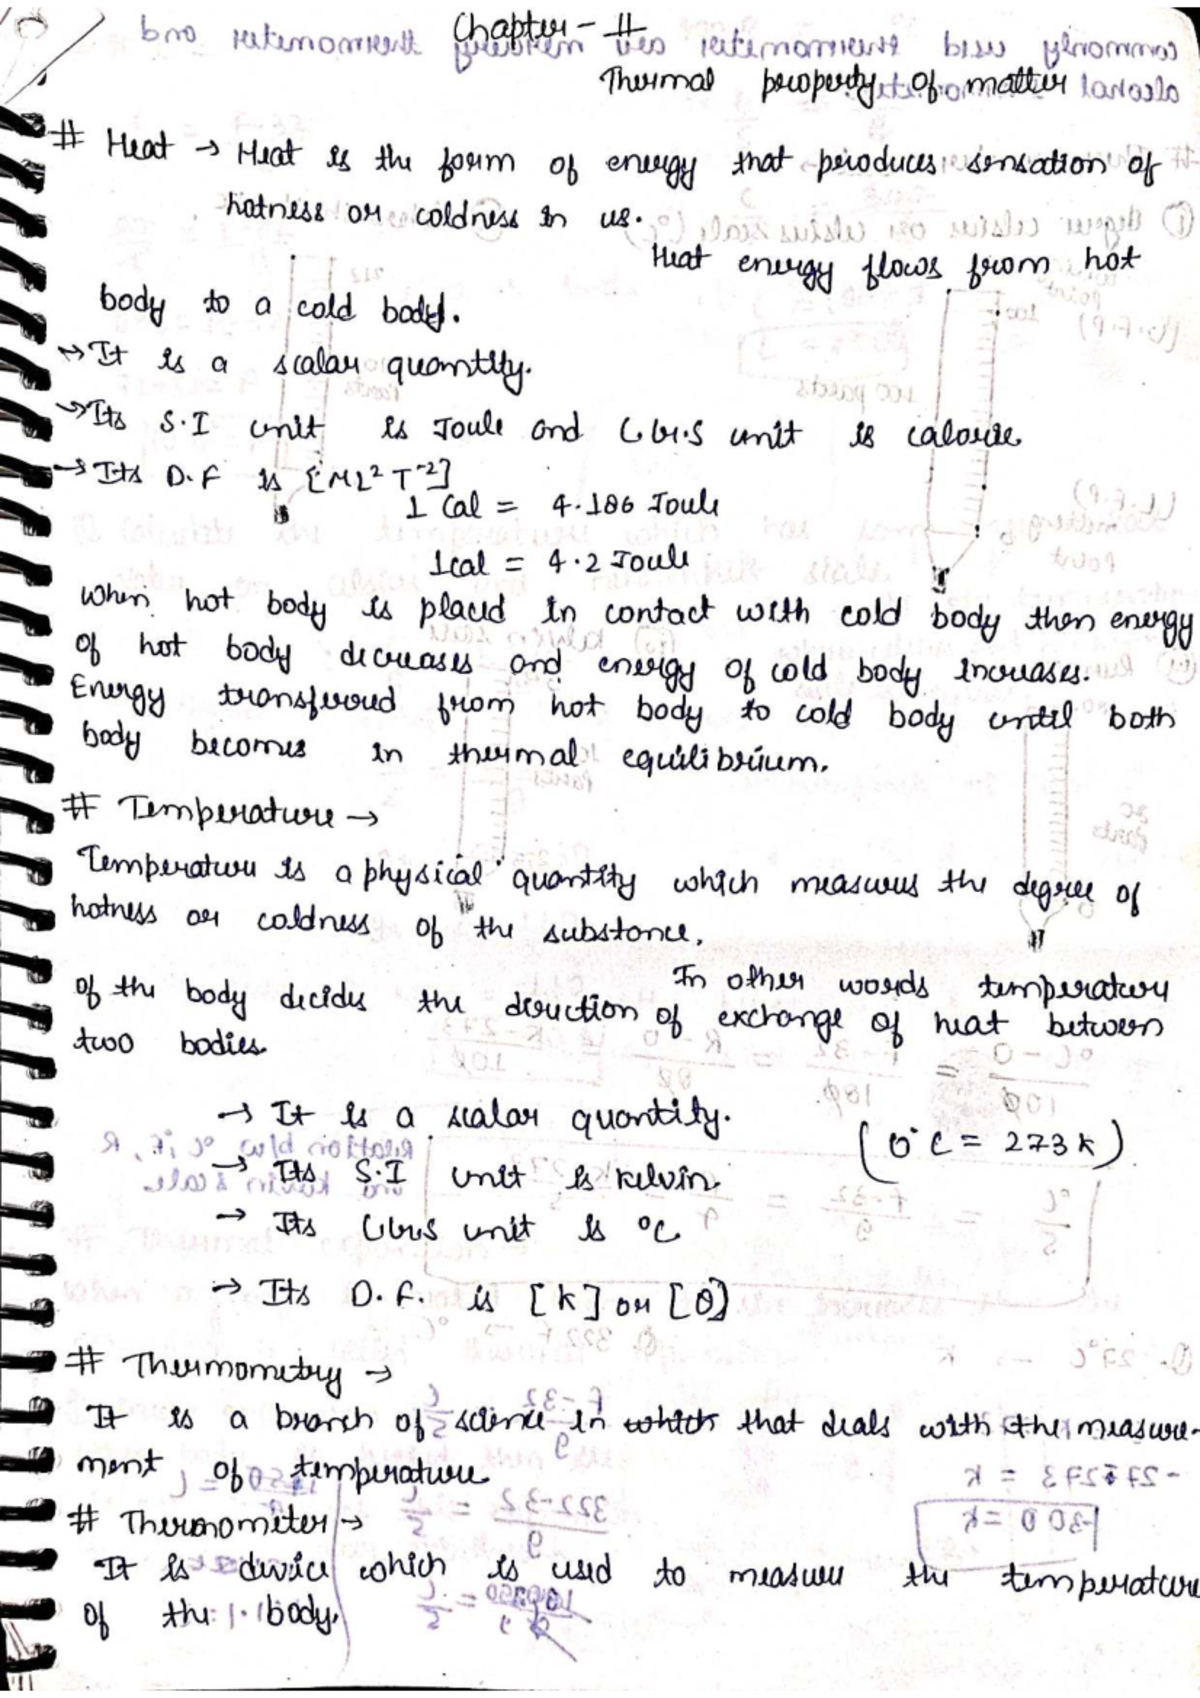 Chapter - 11
Thermal property of matter
# Heat → Heat is the form of energy that produces sensation of
hotness or coldness in us.
Heat energy flows from hot
body to a cold body.
→ It is a scalar quantity.
→ Its S.I unit is Joule and C.G.S unit is calorie
→ Its D.F is [ML²T⁻²]
1 Cal = 4.186 Joule
1cal = 4.2 Joule
When hot body is placed in contact with cold body then energy
of hot body decreases and energy of cold body increases.
Energy transferred from hot body to cold body until both
body becomes in thermal equilibrium.
# Temperature →
Temperature is a physical quantity which measures the degree of
hotness or coldness of the substance.
In other words temperature
of the body decides the direction of exchange of heat between
two bodies.
→ It is a scalar quantity.
(0°C = 273k)
→ Its S.I unit is kelvin.
→ Its C.G.S unit is °C
→ Its D.F. is [K] or [θ]
# Thermometry →
It is a branch of science in which that deals with the measure-
ment of temperature
# Thermometer →
It is device which is used to measure the temperature
of the body.